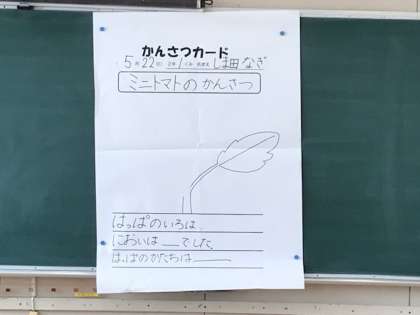 かんさつカード
5月22日 2年1くみ 名まえ しま田なぎ
ミニトマトのかんさつ
はっぱのいろは、
においは___でした。
はっぱのかたちは______